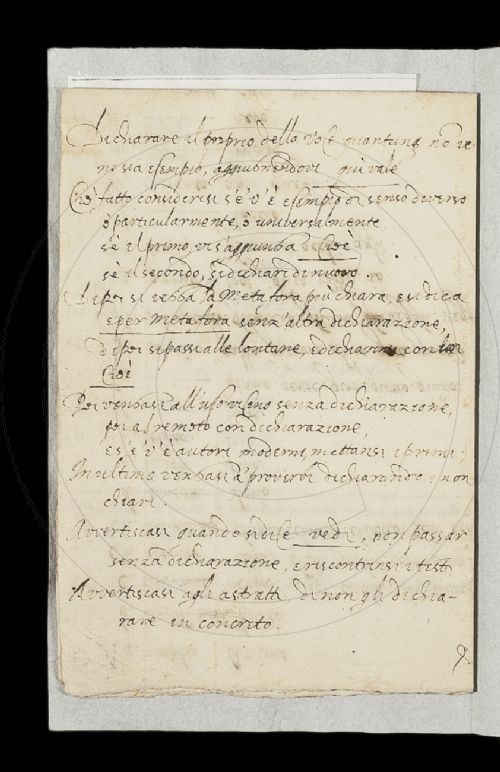 Dichiarare il proprio della Voce quantunq. nõ ve
ne sia esempio, aggiugnendovi qui vale
Ciò fatto consideresi se v'è esempio di senso diverso
ò particularmente, ò universalmente
s'è il primo, vi s'aggiunga Cioè
s'è il secondo, si dichiari di nuovo
Dipoi si vegga la Metafora più chiara, e si dica
e per Metafora senz'altra dichiarazione,
dipoi si passi alle lontane, e dichiarinsi con
Cioè
Poi vengasi all'uso vicino senza dichiarazione,
poi al remoto con dichiarazione,
e s'e' v'è autori moderni, mettansi i primi;
In ultimo vengasi a' proverbi dichiarando i non
chiari.
Avvertiscasi quando si dice vedi, non passar
senza dichiarazione, e riscontrinsi i testi
Avvertiscasi agli astratti, di non gli dichia-
rare in concreto.